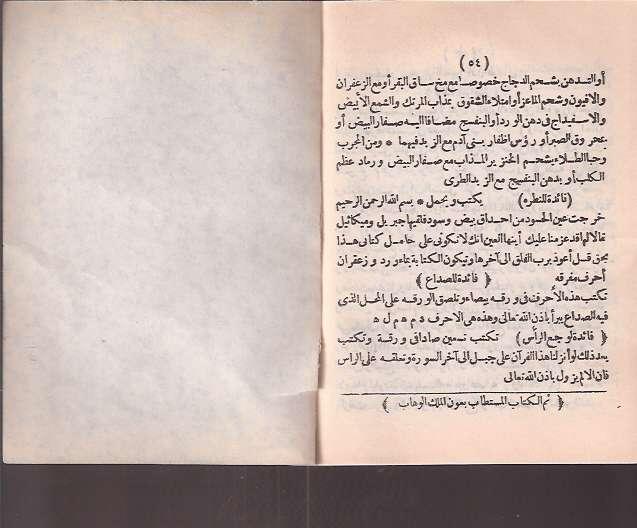 (٥٤)
أو التدهن بشحم الدجاج خصوصا مع مخ ساق البقر أو مع الزعفران
والافيون وشحم الماعز أو امتلاء الشقوق بمذاب المرتك والشمع الأبيض
والاسفيداج فى دهن الورد أو البنفسج مضافا اليه صفار البيض أو
بمحروق الصبر أو رؤس اظفار بنى آدم مع الزبد فيهما * ومن المجرب
الطلاء بشحم الخنزير المذاب مع صفار البيض ورماد عظم
الكلب أو بدهن البنفسج مع الزبد الطرى
(فائدة للنظره) يكتب ويحمل * بسم الله الرحمن الرحيم
خرجت عين الحسود من احداق بيض وسود فلقيها جبريل وميكائيل
فقالا لها قد عزمنا عليك أيتها العين انك لا تكونى على حامل كتابى هذا
بحق قل أعوذ برب الفلق الى آخرها وتكون الكتابة بماء ورد وزعفران
أحرف مفرقه ﴿ فائدة للصداع ﴾
تكتب هذه الأحرف فى ورقه بيضاء وتلصق الورقه على المحل الذى
فيه الصداع يبرأ باذن الله تعالى وهذه هى الاحرف د م ه م ل ه
﴿ فائدة لوجع الرأس ﴾ تكتب تسعين صادا فى ورقة وتكتب
بعد ذلك لو أنزلنا هذا القرآن على جبل الى آخر السورة وتعلقه على الراس
فان الالم يزول باذن الله تعالى
﴿ تم الكتاب المستطاب بعون الملك الوهاب ﴾